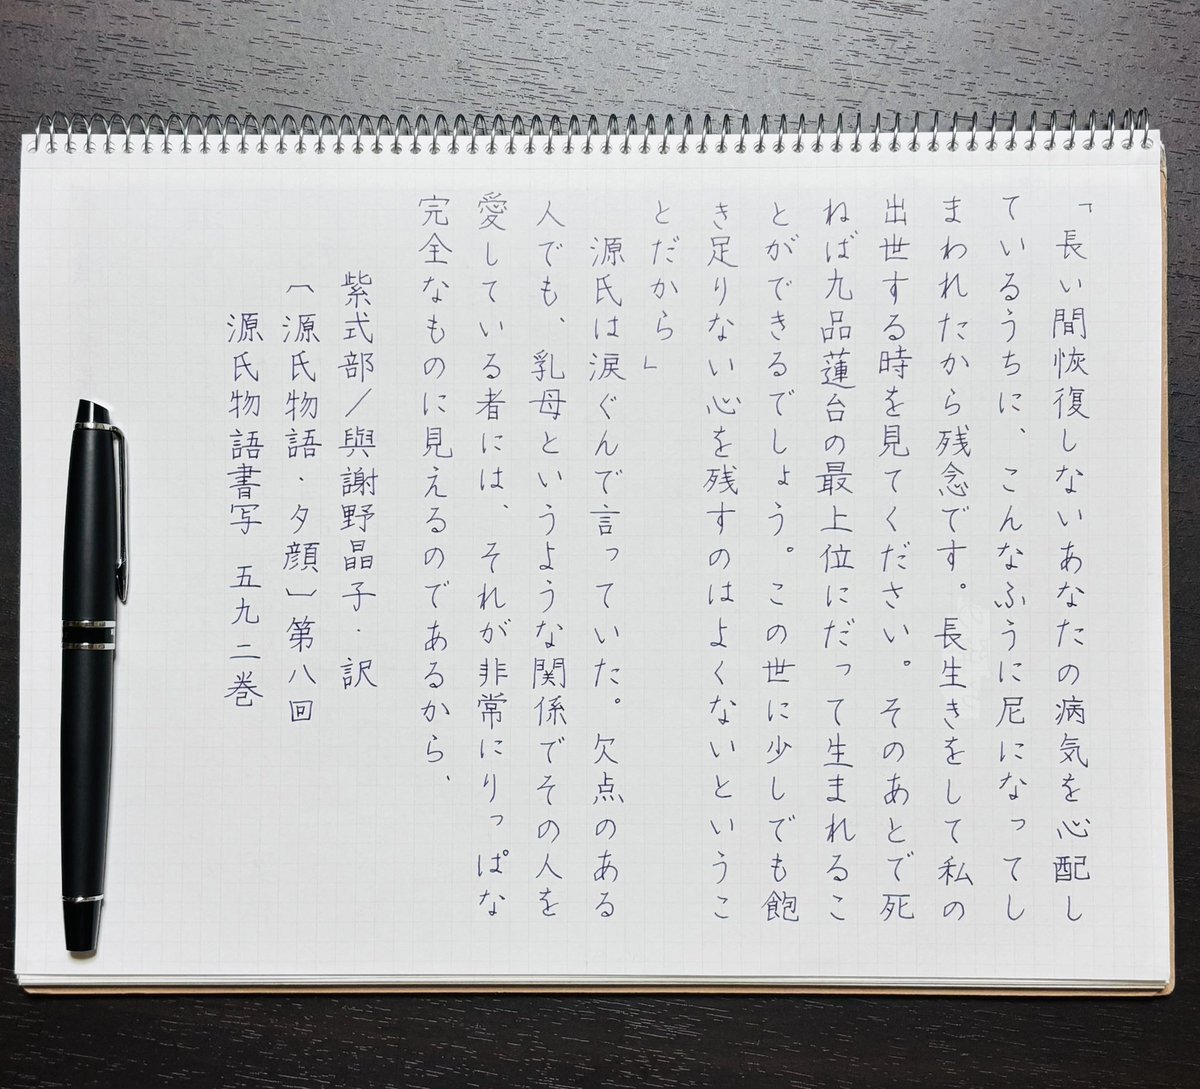 「長い間恢復しないあなたの病気を心配し
ているうちに、こんなふうに尼になってし
まわれたから残念です。長生きをして私の
出世する時を見てください。そのあとで死
ねば九品蓮台の最上位にだって生まれるこ
とができるでしょう。この世に少しでも飽
き足りない心を残すのはよくないというこ
とだから」
源氏は涙ぐんで言っていた。欠点のある
人でも、乳母というような関係でその人を
愛している者には、それが非常にりっぱな
完全なものに見えるのであるから、
紫式部/與謝野晶子・訳
〔源氏物語・夕顔〕第八回
源氏物語書写 五九二巻